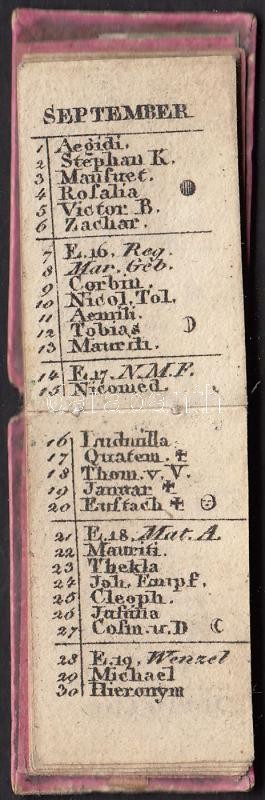 SEPTEMBER
1 Aegidi.
2 Stephan K.
3 Mansuet.
4 Rosalia
5 Victor B.
6 Zachar.
7 E.16. Reg.
8 Mar. Geb.
9 Corbin.
10 Nicol. Tol.
11 Aemili.
12 Tobias
13 Mauriti.
14 E.17. N.M.F.
15 Nicomed.
16 Ludmilla
17 Quatem. ✠
18 Thom. v. V.
19 Januar ✠
20 Eustach ✠
21 E.18. Mat. A.
22 Mauriti.
23 Thekla
24 Joh. Empf.
25 Cleoph.
26 Justina
27 Cosm. u. D
28 E.19. Wenzel
29 Michael
30 Hieronym